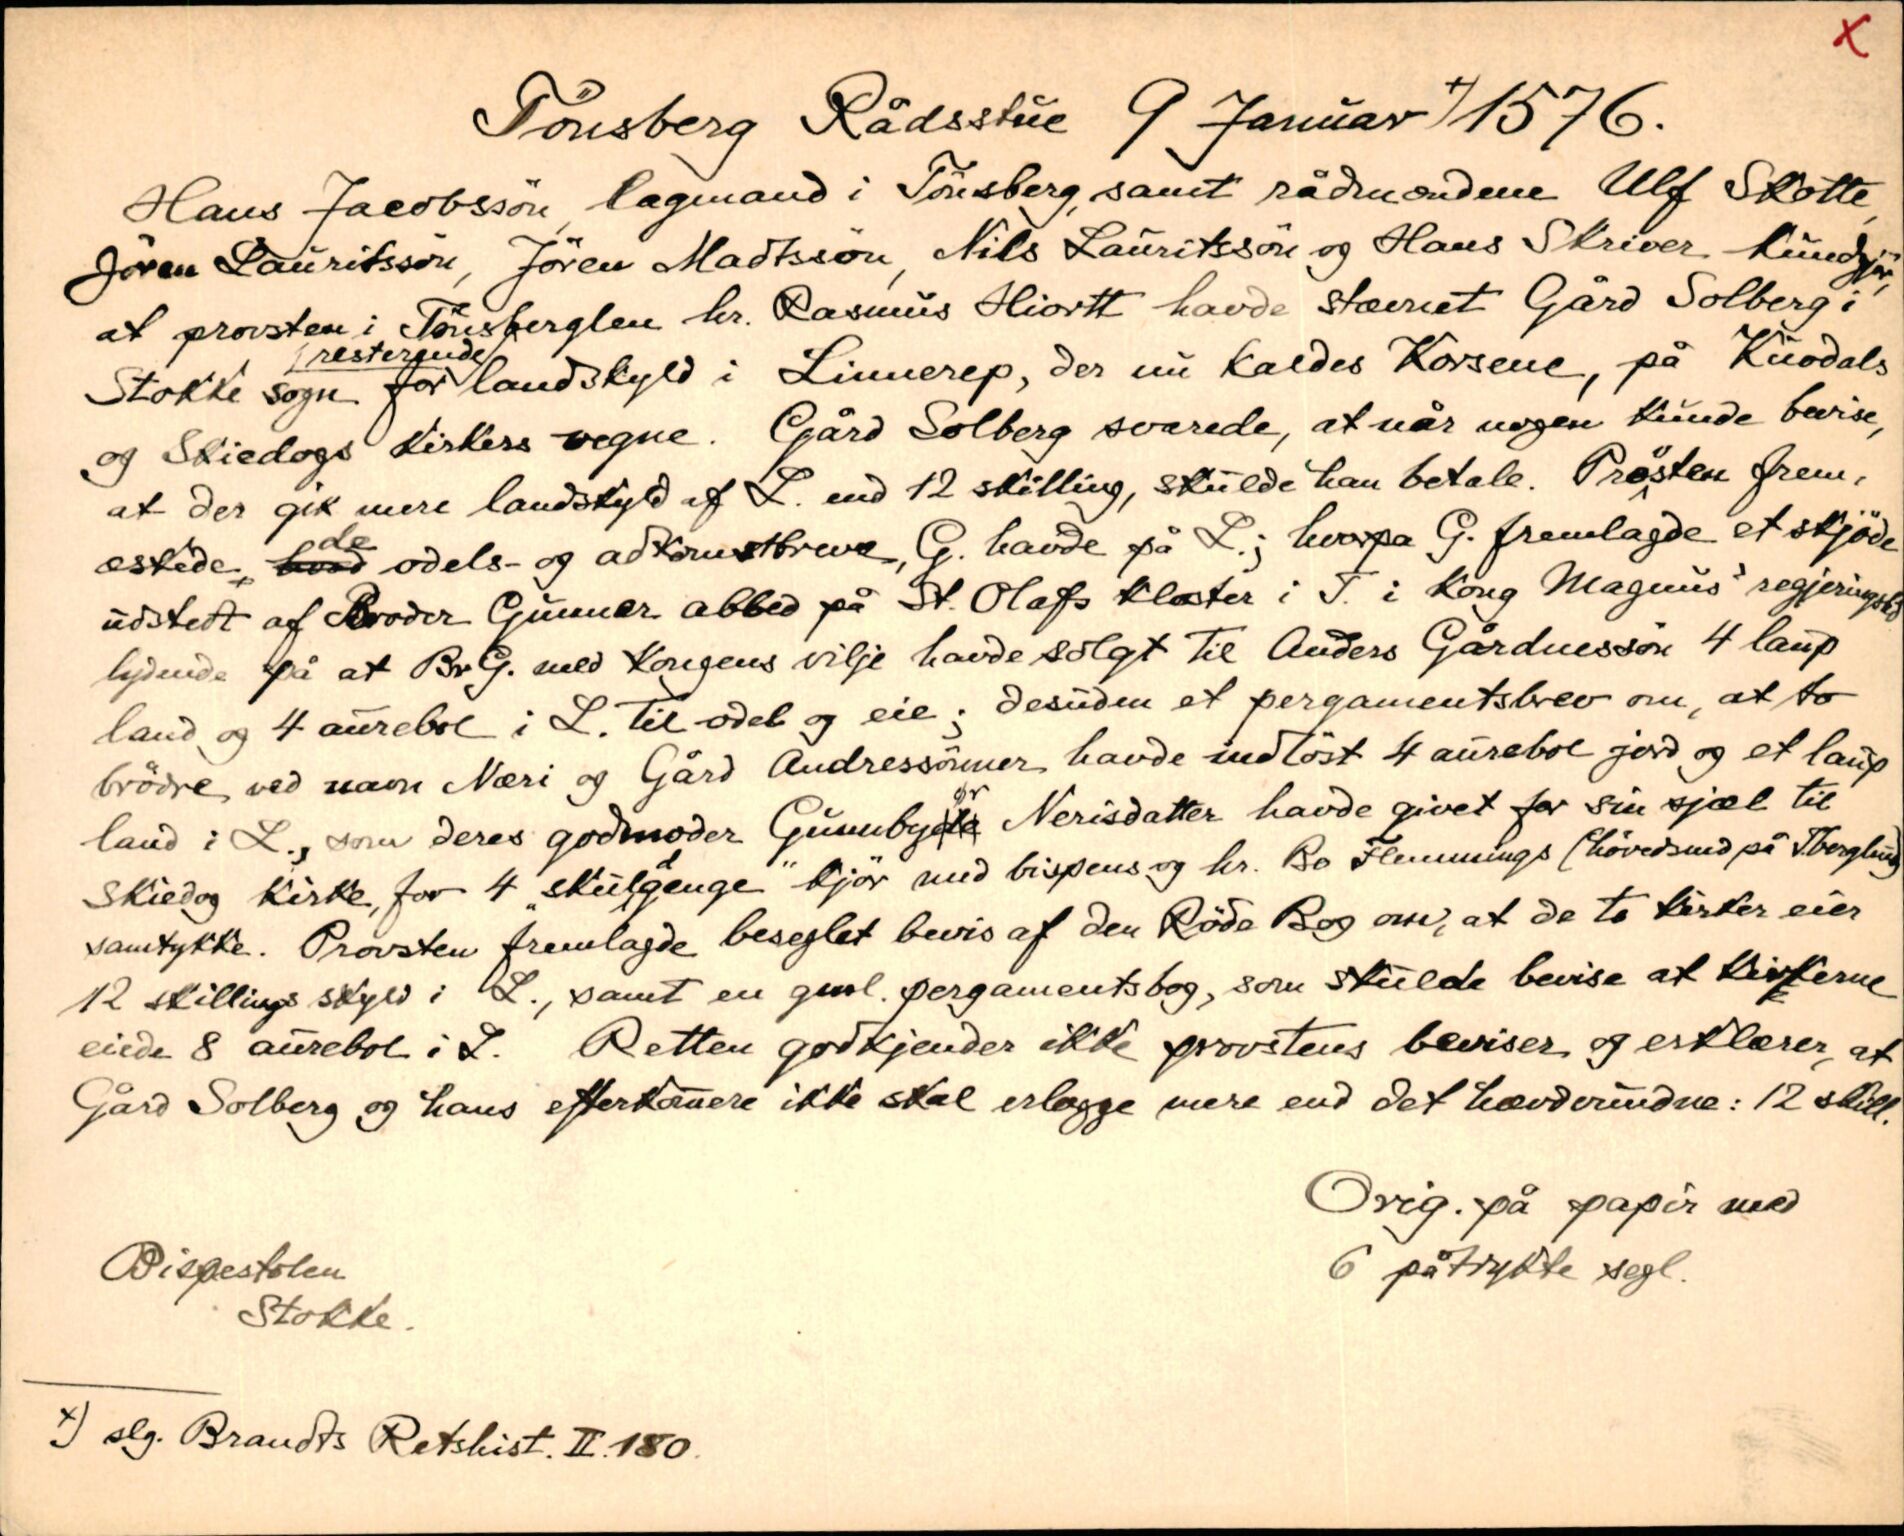 x
Tönsberg Rådsstue 9 Januar +) 1576.
Hans Jacobssön, lagmand i Tönsberg, samt rådmændene Ulf Skotte,
Jören Lauritssön, Jören Madtssön, Nils Lauritssön og Hans Skriver kundgjör,
at provsten i Tönsberglen hr. Rasmus Hiortt havde stævnet Gård Solberg i
Stokke sogn for resterende landskyld i Linnerep, der nu kaldes Korsene, på Kuodals
og Skiedogs kirkers vegne. Gård Solberg svarede, at når nogen kunde bevise,
at der gik mere landskyld af L. end 12 skilling, skulde han betale. Prosten frem-
æskede de odels- og adkomstbreve, G. havde på L.; hvorpa G. fremlagde et skjöde
udstedt af Broder Gunner abbed på St. Olafs kloster i T. i Kong Magnus' regjeringstid
lydende på at Br G. med kongens vilje havde solgt til Anders Gårdnessön 4 laup
land og 4 aurebol i L. til odel og eie; desuden et pergamentsbrev om, at to
brödre ved navn Næri og Gård Andressönner havde indlöst 4 aurebol jord og et laup
land i L., som deres godmoder Gunnbyör Nerisdatter havde givet for sin sjæl til
Skiedog Kirke, for 4 "skuldgenge" kjör med bispens og hr. Bo Flemmings (hövedsmd på Tberglhus)
samtykke. Provsten fremlagde beseglet bevis af den Röde Bog om, at de to kirker eier
12 skillings skyld i L., samt en gml. pergamentsbog, som skulde bevise at kirkerne
eiede 8 aurebol i L. Retten godkjender ikke provstens beviser og erklærer, at
Gård Solberg og hans efterkom̄ere ikke skal erlægge mere end det hævdvundne: 12 skill.
Orig. på papir med
6 påtrykte segl.
Bispestolen
Stokke.
+) slg. Brandts Retshist. II. 180.